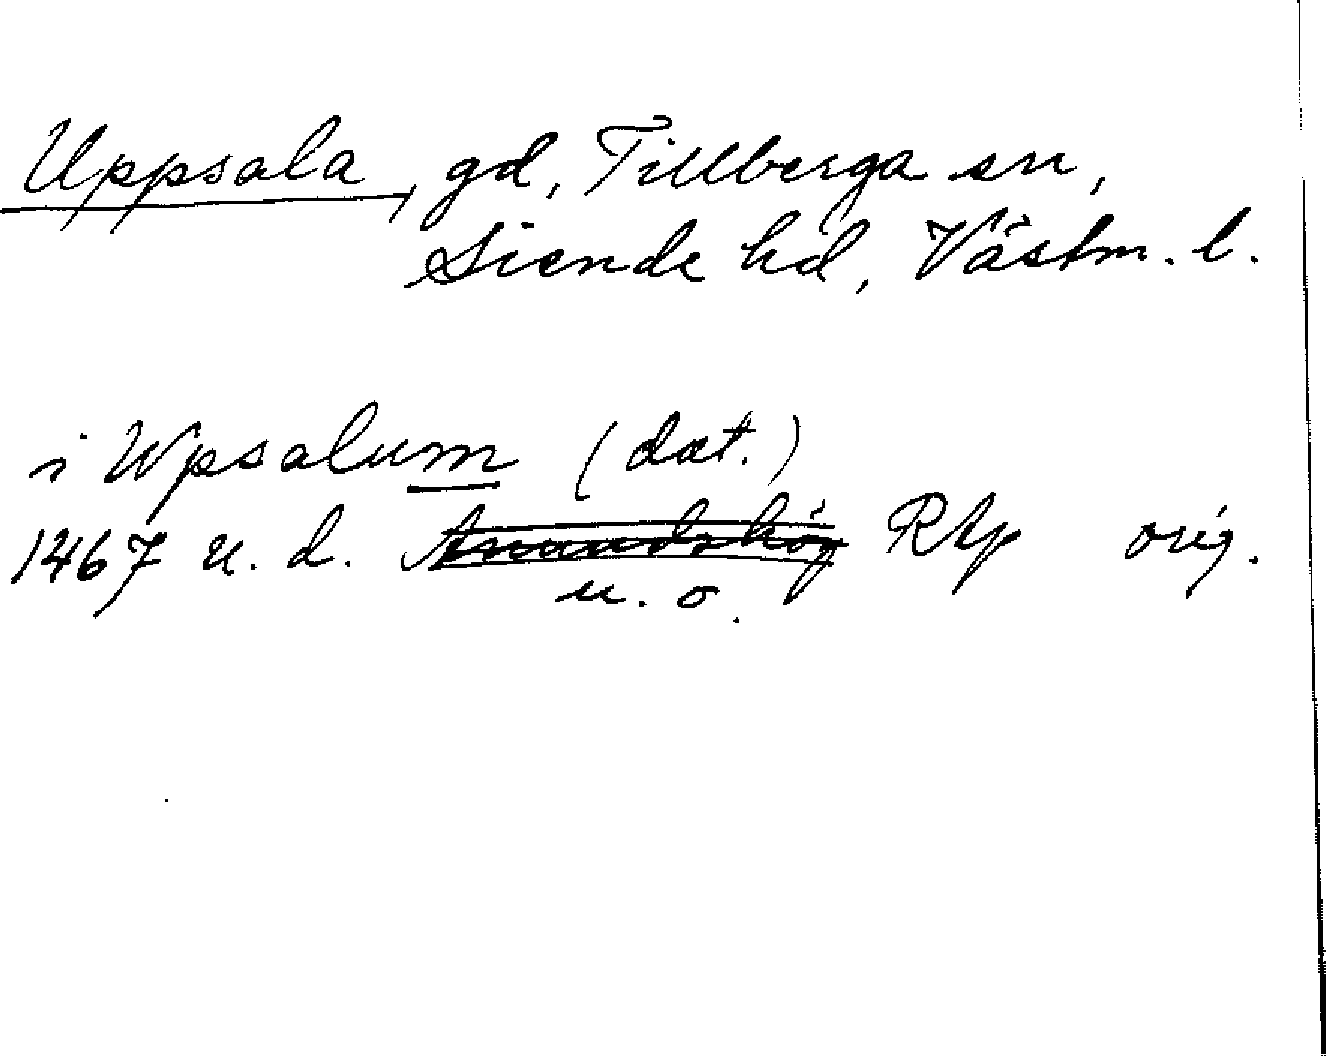 Uppsala, gd, Tillberga sn,
Siende hd, Västm. l.
i Wpsalum (dat.)
1467 u. d. Anundshög RAp orig.
u. o.